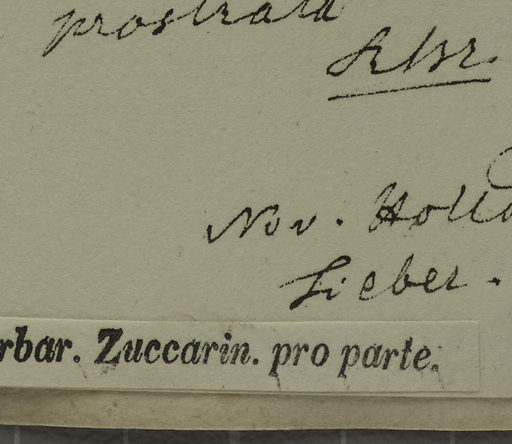 prostrata
RBr.
Nov. Holla
Sieber.
rbar. Zuccarin. pro parte.